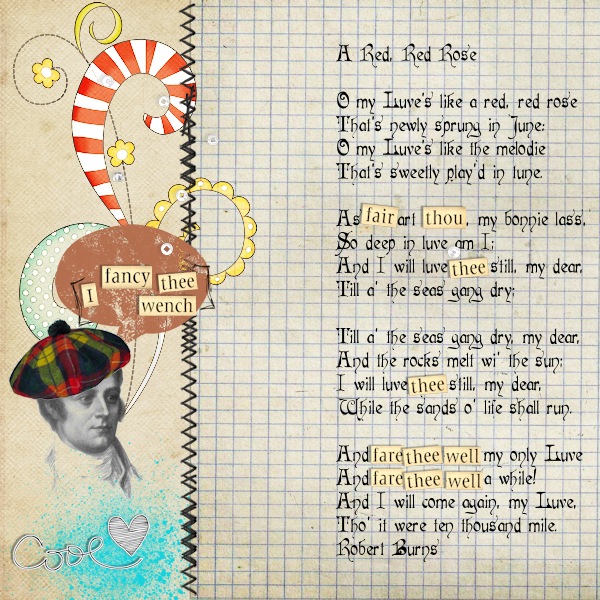 I fancy thee
wench
Love
A Red, Red Rose
O my Luve's like a red, red rose
That's newly sprung in June:
O my Luve's like the melodie
That's sweetly play'd in tune.
As fair art thou, my bonnie lass,
So deep in luve am I;
And I will luve thee still, my dear,
Till a' the seas gang dry;
Till a' the seas gang dry, my dear,
And the rocks melt wi' the sun;
I will luve thee still, my dear,
While the sands o' life shall run.
And fare thee well my only Luve
And fare thee well a while!
And I will come again, my Luve,
Tho' it were ten thousand mile.
Robert Burns